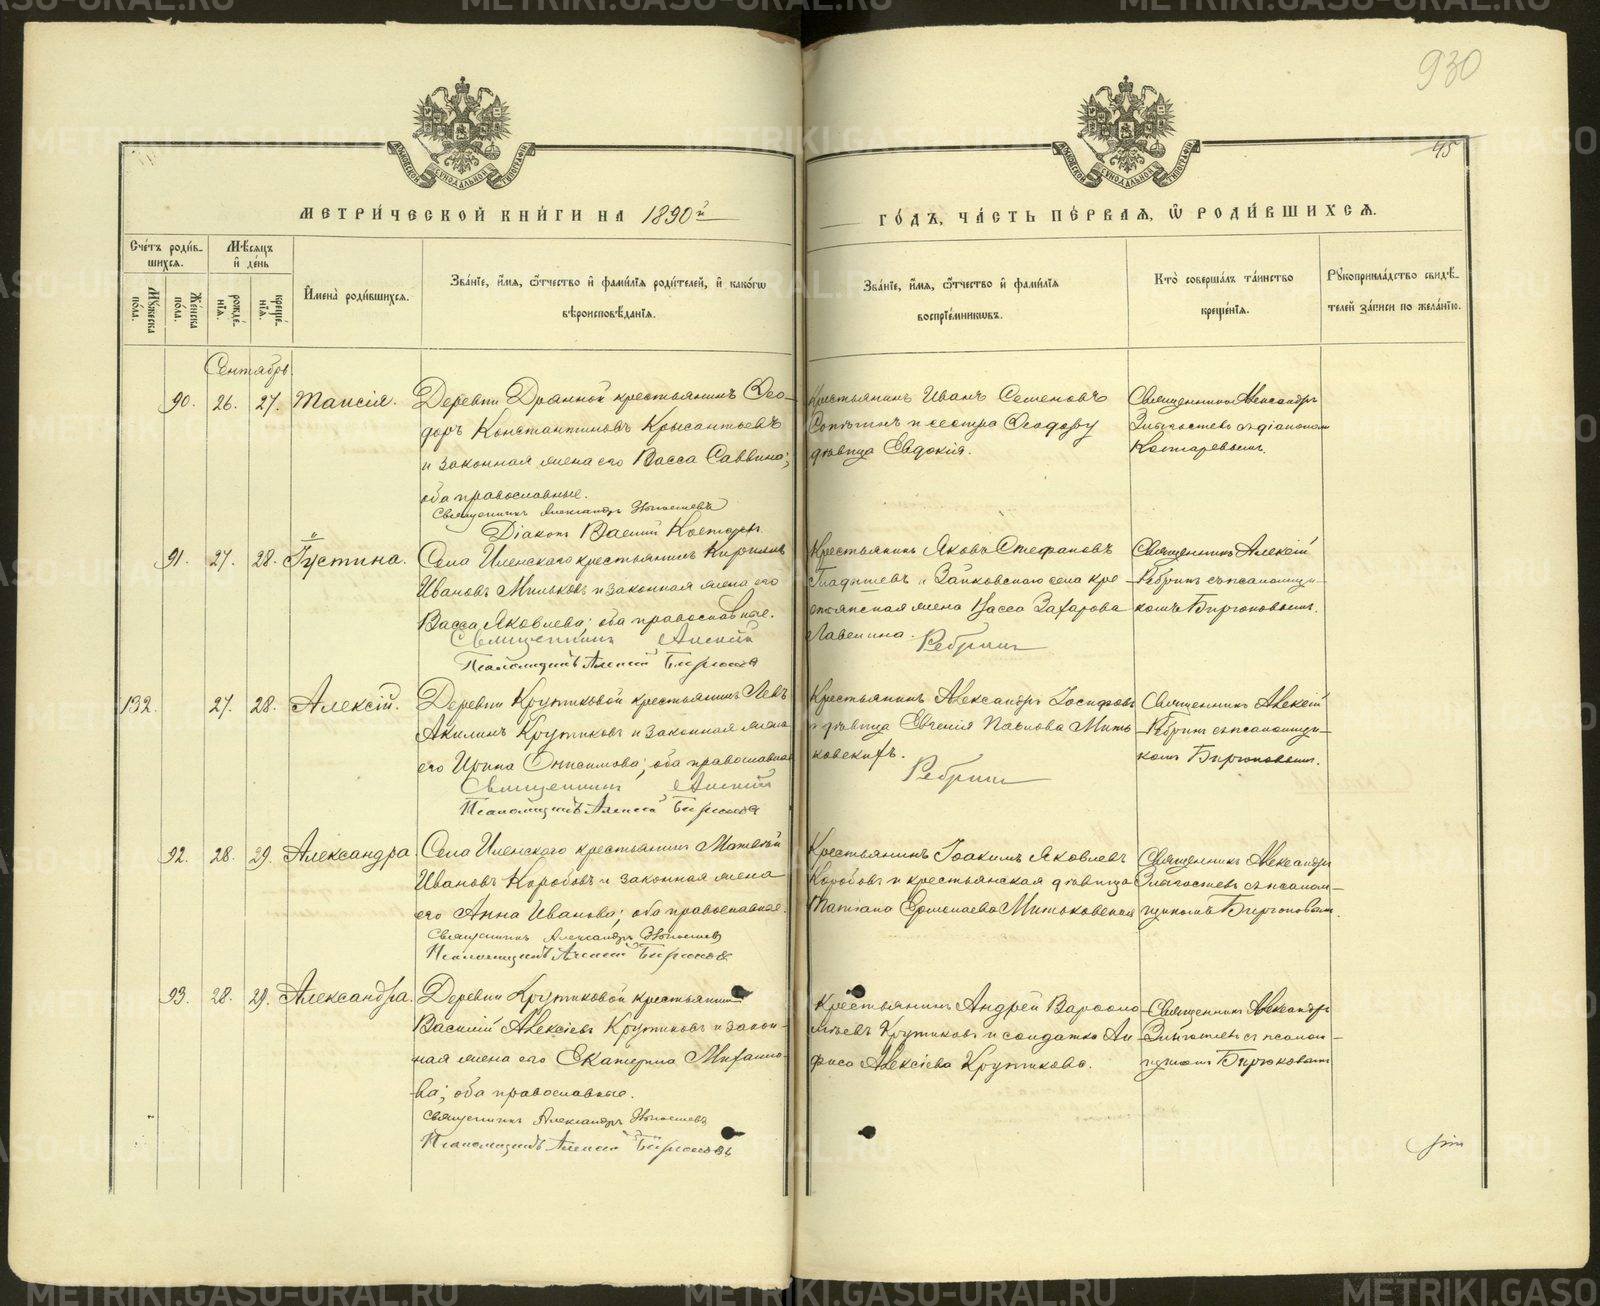 930
45
МЕТРИ́ЧЕСКОЙ КНИ́ГИ НА 1890й
ГО́ДЪ, ЧА́СТЬ ПЕ́РВАЯ, Ѡ РОДИ́ВШИХСЯ.
Сче́тъ роди́в-
шихся.
Му́жеска по́ла.
Же́нска по́ла.
Мѣ́сяцъ
и де́нь
рожде́-
нїя.
креще́-
нїя.
Имена̀ роди́вшихся.
Зва́нїе, и́мя, ѻ́тчество и фами́лїя роди́телей, и како́гѡ
вѣроисповѣ́данїя.
Зва́нїе, и́мя, ѻ́тчество и фами́лїя
воспрїе́мникѡвъ.
Кто̀ соверша́лъ та́инство
креще́нїя.
Рꙋкоприкла́дство свидѣ́-
телей за́писи по жела́нїю.
Сентябрь.
90. 26. 27. Таисія.
Деревни Дрянной крестьянинъ Ѳео-
доръ Константиновъ Крысантьевъ
и законная жена его Васса Саввина;
оба православные.
Священникъ Александръ
Діаконъ Василій Костарев
Крестьянинъ Иванъ Семеновъ
и сестра Ѳеодору
дѣвица Евдокія.
Священникъ Александръ
съ діакономъ
Костаревымъ.
91. 27. 28. Іустина.
Села Иленскаго крестьянинъ Кириллъ
Ивановъ Мильковъ и законная жена его
Васса Яковлева; оба православные.
Священникъ Алексій Ребринъ
Псаломщикъ Алексій Бирюковъ
Крестьянинъ Яковъ Стефановъ
Гладышевъ и Зайковскаго села кре-
стьянская жена Васса Захарова
Лавелина.
Священникъ Алексій
Ребринъ съ псаломщи-
комъ Бирюковымъ.
132. 27. 28. Алексій.
Деревни Крутиковой крестьянинъ Левъ
Акилинъ Крутиковъ и законная жена
его Ирина Онисимова; оба православные
Священникъ Алексій Ребринъ
Псаломщикъ Алексій Бирюковъ
Крестьянинъ Александръ Іосифовъ
и дѣвица Евгенія Павлова Мить-
ковскихъ.
Священникъ Алексій
Ребринъ съ псаломщи-
комъ Бирюковымъ.
92. 28. 29. Александра.
Села Иленскаго крестьянинъ Матвѣй
Ивановъ Коробовъ и законная жена
его Анна Иванова; оба православные.
Священникъ Александръ
Псаломщикъ Алексій Бирюковъ
Крестьянинъ Іоакимъ Яковлевъ
Коробовъ и крестьянская дѣвица
Татіана Ермолаева Митьковская
Священникъ Александръ
съ псалом-
щикомъ Бирюковымъ.
93. 28. 29. Александра.
Деревни Крутиковой крестьянинъ
Василій Алексіевъ Крутиковъ и закон-
ная жена его Екатерина Михаило-
ва; оба православные.
Священникъ Александръ
Псаломщикъ Алексій Бирюковъ
Крестьянинъ Андрей Варѳоло-
мѣевъ Крутиковъ и солдатка Ан-
фиса Алексіева Крутикова.
Священникъ Александръ
съ псалом-
щикомъ Бирюковымъ